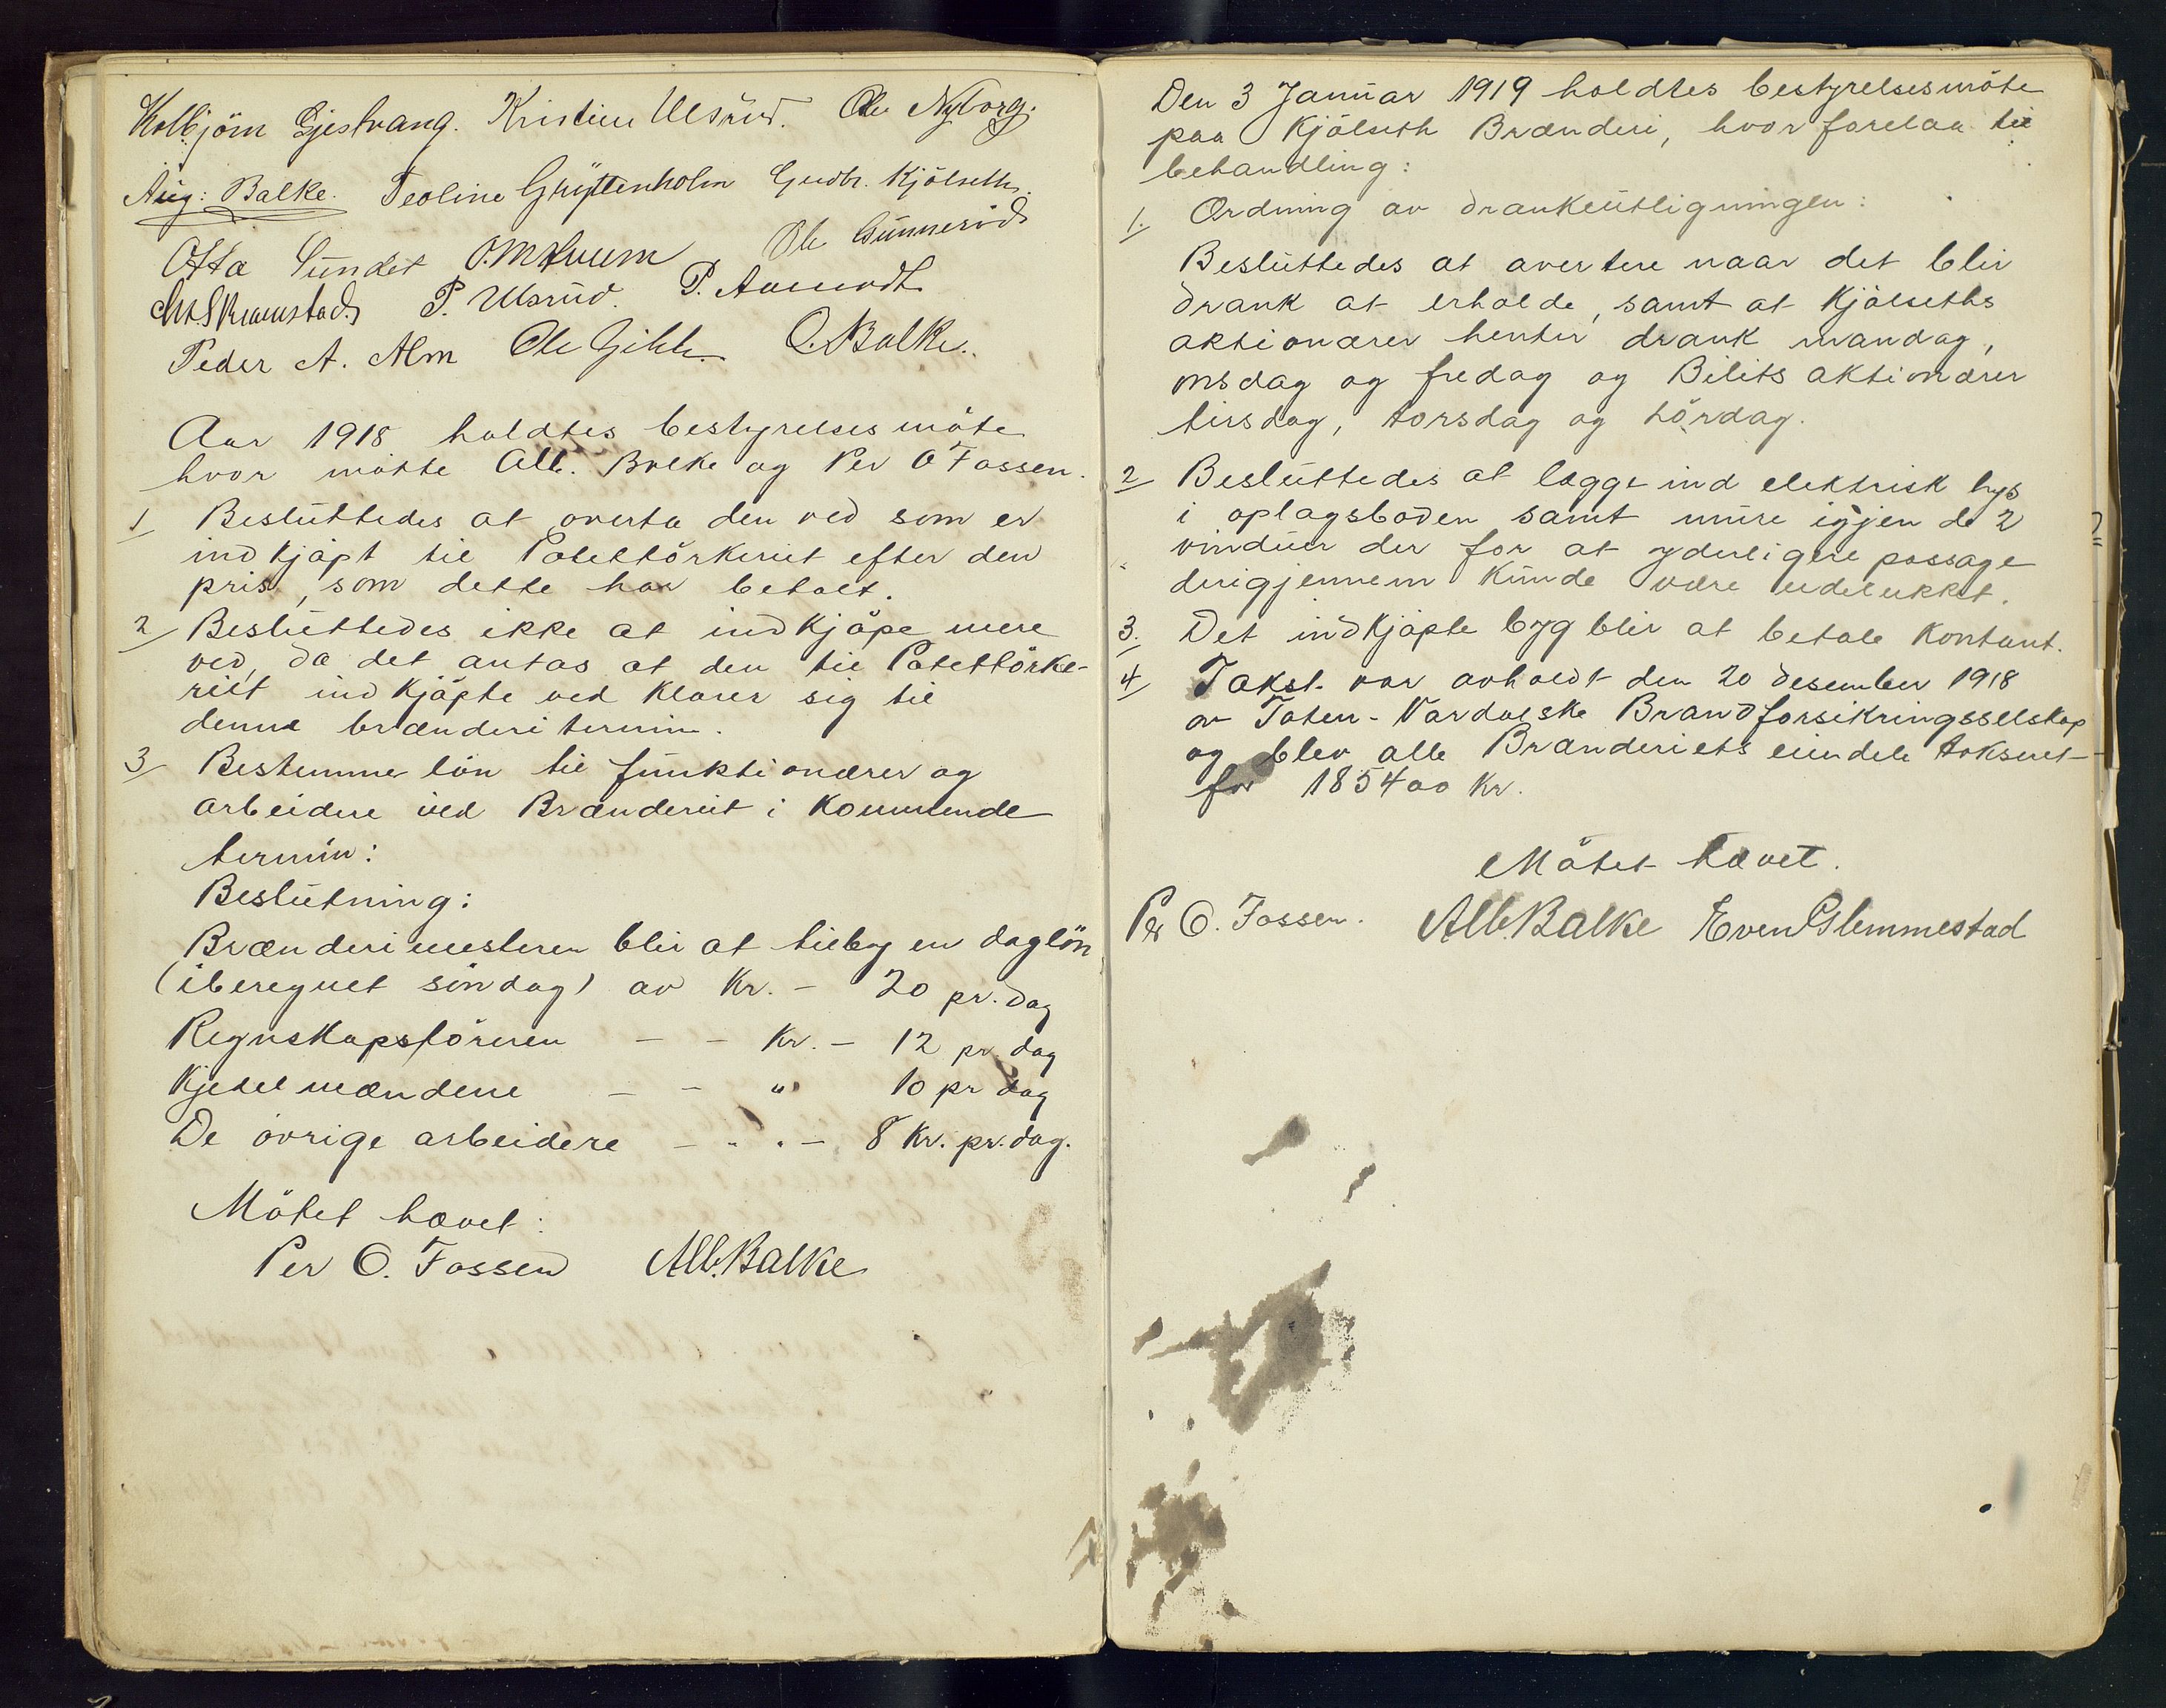 Kolbjörn Gjestvang. Kristine Ulsrud. Ole Nyborg.
Aug: Balke. Teoline Gryttenholm Gudbr. Kjölseth.
Otto Sundet O. M. Ole Gunneröd
P. Ulsrud. P. Aamodt
Peder A. Alm Ole O. Balke.
Aar 1918 holdtes bestyrelsesmöte
hvor mötte Alb. Balke og Per O Fossen.
1 Besluttedes at overta den ved som er
indkjöpt til Potettörkeriet efter den
pris, som dette har betalt.
2 Besluttedes ikke at indkjöpe mere
ved, da det antas at den til Potettörke-
riet indkjöpte ved klarer sig til
denne brænderi termin.
3 Bestemme lön til funktionærer og
arbeidere ved Brænderiet i kommende
termin:
Beslutning:
Brænderimesteren blir at tilby en daglön
(iberegnet söndag) av Kr. - 20 pr. dag
Regnskapsföreren - - Kr. - 12 pr. dag
Kjedelmændene - - " 10 pr dag
De övrige arbeidere - " " - 8 Kr. pr. dag.
Mötet hævet:
Per O. Fossen Alb. Balke
Den 3 Januar 1919 holdtes bestyrelsesmöte
paa Kjölseth Brænderi, hvor forelaa til
behandling:
1. Ordning av drankeutligningen:
Besluttedes at avertere naar det blir
drank at erholde, samt at Kjölseths
aktionærer henter drank mandag,
onsdag og fredag og Bilits aktionærer
tirsdag, torsdag og lördag.
2 Besluttedes at lægge ind elektrisk lys
i oplagsboden samt mure igjen de 2
vinduer der for at yderligere passage
derigjennem kunde være udelukket.
3. Det indkjöpte byg blir at betale kontant.
4 Takst var avholdt den 20 desember 1918
av Toten-Vardalske Brandforsikringsselskap
og blev alle Brænderiets eiendele taksert
for 185400 Kr.
Mötet hævet.
Per O. Fossen. Alb. Balke Even Glemmestad